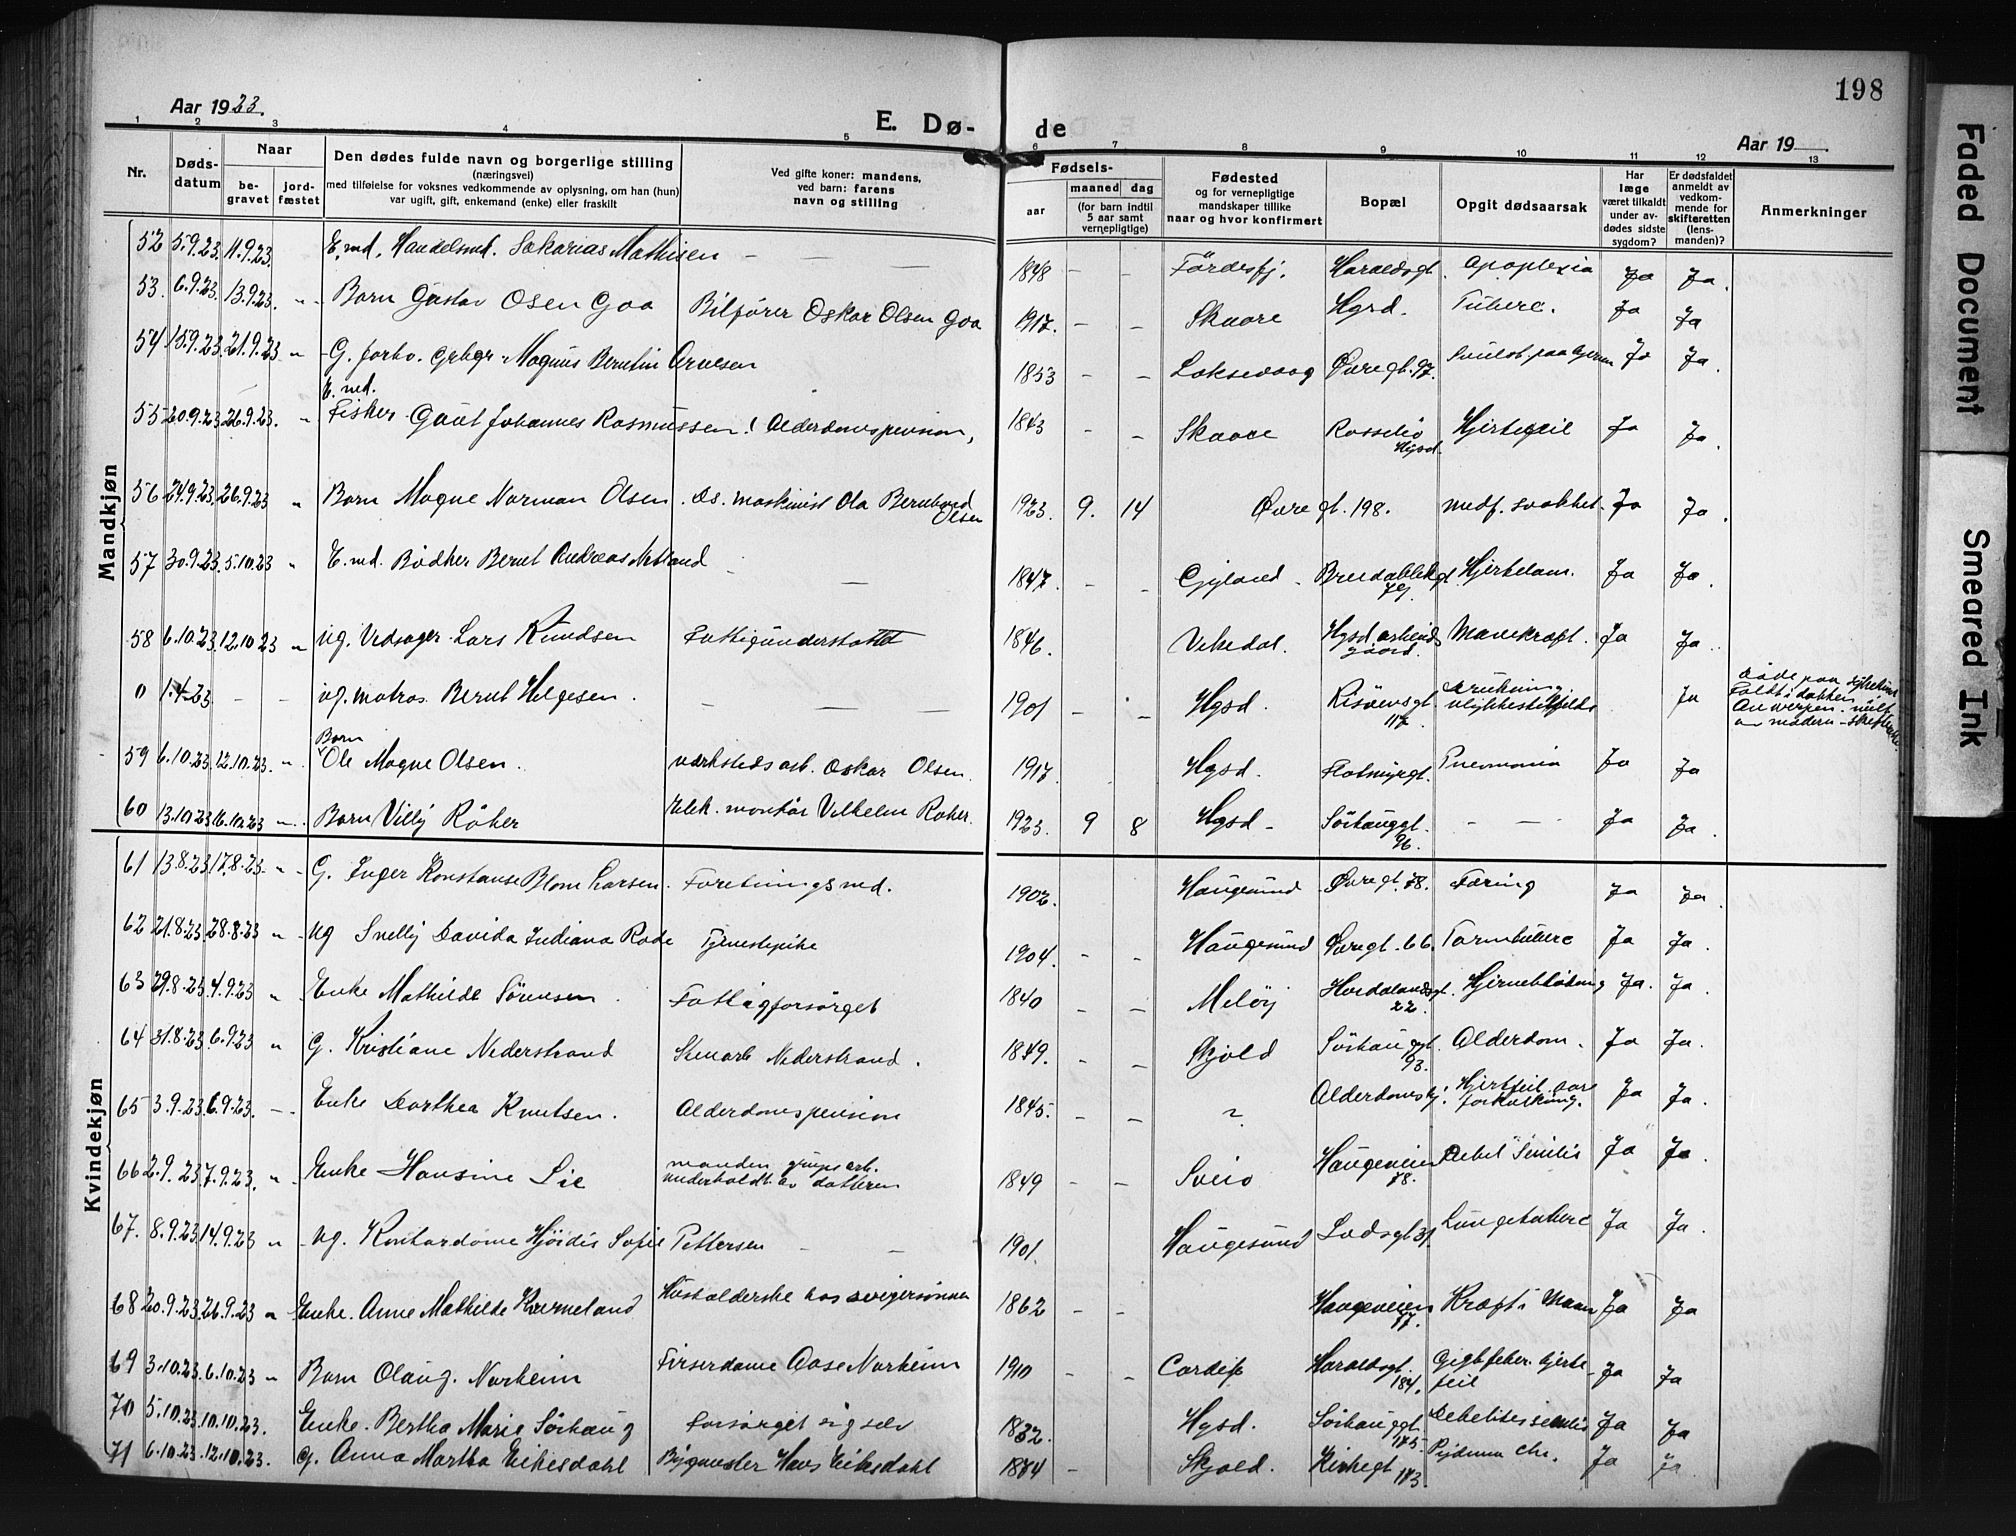 198
Aar 1923.
E. Dø-
de
Aar 19
1 2 3 4 5 6 7 8 9 10 11 12 13
Nr.
Døds-
datum
Naar
be-
gravet
jord-
fæstet
Den dødes fulde navn og borgerlige stilling
(næringsvei)
med tilføielse for voksnes vedkommende av oplysning, om han (hun)
var ugift, gift, enkemand (enke) eller fraskilt
Ved gifte koner: mandens,
ved barn: farens
navn og stilling
Fødsels-
aar
maaned dag
(for barn indtil
5 aar samt
vernepligtige)
Fødested
og for vernepligtige
mandskaper tillike
naar og hvor konfirmert
Bopæl
Opgit dødsaarsak
Har
læge
været tilkaldt
under av-
dødes sidste
sygdom?
Er dødsfaldet
anmeldt av
vedkom-
mende for
skifteretten
(lens-
manden)?
Anmerkninger
Mandkjøn
52 5.9.23. 11.9.23. E.md. Handelsmd. Sakarias Mathisen — — — 1848 - - Førdesfj. Haraldsgt. Apoplexia Ja Ja.
53. 6.9.23. 13.9.23. " Barn Gustav Osen Goa Bilfører Oskar Olsen Goa 1917. - - Skaare Hgsd. Tuberc. Ja Ja
54 15.9.23. 21.9.23 " G. forhv. Magnus Berntin 1853 - - Loksevaag Øvregt. 97. Ja Ja.
E.md.
55 20.9.23 26.9.23. " Fisker Gaut Johannes Rasmussen. Alderdomspension, 1843 - - Skaare Hgsd. Hjertefeil Ja Ja.
56 24.9.23. 26.9.23 " Barn Magne Norman Olsen. Ds. maskinist Ola Bernhard Olsen 1923. 9. 14 Øvregt. 198. medf. svakhet. Ja Ja.
57 30.9.23. 5.10.23 " E.md. Bødker Bernt Andreas Netland - — 1847. - - Gyland Breidablikgt. 79. Hjertelam. Ja Ja.
58 6.10.23. 12.10.23 " ug. Vedsager Lars Knudsen Fattigunderstøttet 1846. Vikedal. Hgsd arbeids gaard. Mavekræft. Ja Ja.
0 1.4.23 - - ug. matros Bernt Helgesen. — — — 1901 - - Hgsd. Risøensgt. 117. drukning ulykkestilfælde Ja
Faldt i dokken
Barn
59 6.10.23. 12.10.23. " Ole Magne Olsen. værkstedsarb. Oskar Olsen. 1917 - - Hgsd. Flotmyrgt. Pneomonia Ja Ja
60 13.10.23 16.10.23 " Barn Villy Røker Elek. montør Vilhelm Røker. 1923. 9 8 Hgsd - Sørhauggt. 96. - — Ja Ja.
Kvindekjøn
61 13.8.23 17.8.23. " G. Inger Konstanse Blom Larsen. Foretningsmd. 1902. Haugesund Øvregt. 78. Tæring Ja Ja.
62 21.8.23 28.8.23 " ug Snelly Davida Indiana Rode Tjenestepike 1904. - - Haugesund Øvregt. 66. Tarmtuberc Ja Ja.
63 29.8.23. 4.9.23 " Enke Mathilde Sørensen. Fattigforsørget 1840 - - Meløy Hordalandsgt. 22. Hjerneblødning Ja. Ja.
64 31.8.23 6.9.23 " G. Kristiane Nederstrand Stenarb Nederstrand. 1849. - - Skjold Sørhauggt. 93. Alderdom. Ja Ja.
65 3.9.23 6.9.23. " Enke Dorthea Knutsen. Alderdomspension 1845. - - " Alderdomshj. Hjertefeil aare forkalkning. Ja Ja.
66 2.9.23 7.9.23. " Enke Hansine Lie manden grubearb. underholdt av datteren 1849 - - Sveio Haugeveien 78. Debel Senilis Ja Ja.
67. 8.9.23 14.9.23 " ug. Kontordame Hjørdis Sofie Pettersen - - 1901. Haugesund Lodsgt 31. Lungetuberc Ja Ja.
68 20.9.23 26.9.23 " Enke. Anne Mathilde Kvrneland Husholderske hos svigersønnen 1862 - - Haugeveien 77. Kræft i Maven Ja Ja
69 3.10.23 6.10.23 " Barn Olaug. Norheim Firserdame Aase Norheim 1910 - - Cardiff Haraldsgt. 184. Gigtfeber. hjertefeil Ja Ja
70 5.10.23 10.10.23. Enke. Bertha Marie Sørhaug Forsørget sig selv 1832. Hgsd. Sørhauggt. 175. Debelites senilis Ja Ja
71 6.10.23 12.10.23. G. Anna Martha Eikesdahl Bygmester Hans Eikesdahl 1884 - Skjold. Kirkegt 173. Chr. Ja Ja.
Faded Document
Smeared Ink